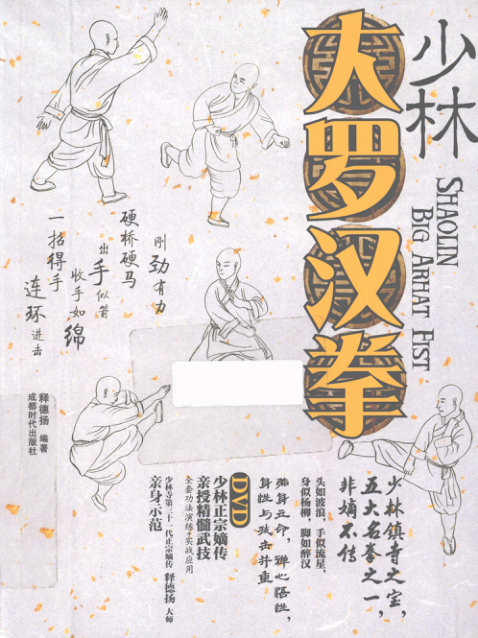 少林
大罗汉拳
SHAOLIN
BIG ARHAT FIST
刚劲有力
硬桥硬马
出手似箭
收手如绵
一招得手
连环进击
少林镇寺之宝，
五大名拳之一，
非嫡不传
头如波浪，手似流星，
身似杨柳，脚如醉汉
立命，禅心悟性，
性与击并重
DVD
少林正宗嫡传
亲授精髓武技
全套功法演练+实战应用
少林寺第三十一代正宗嫡传 释德扬 大师
亲身示范
释德扬 编著
成都时代出版社